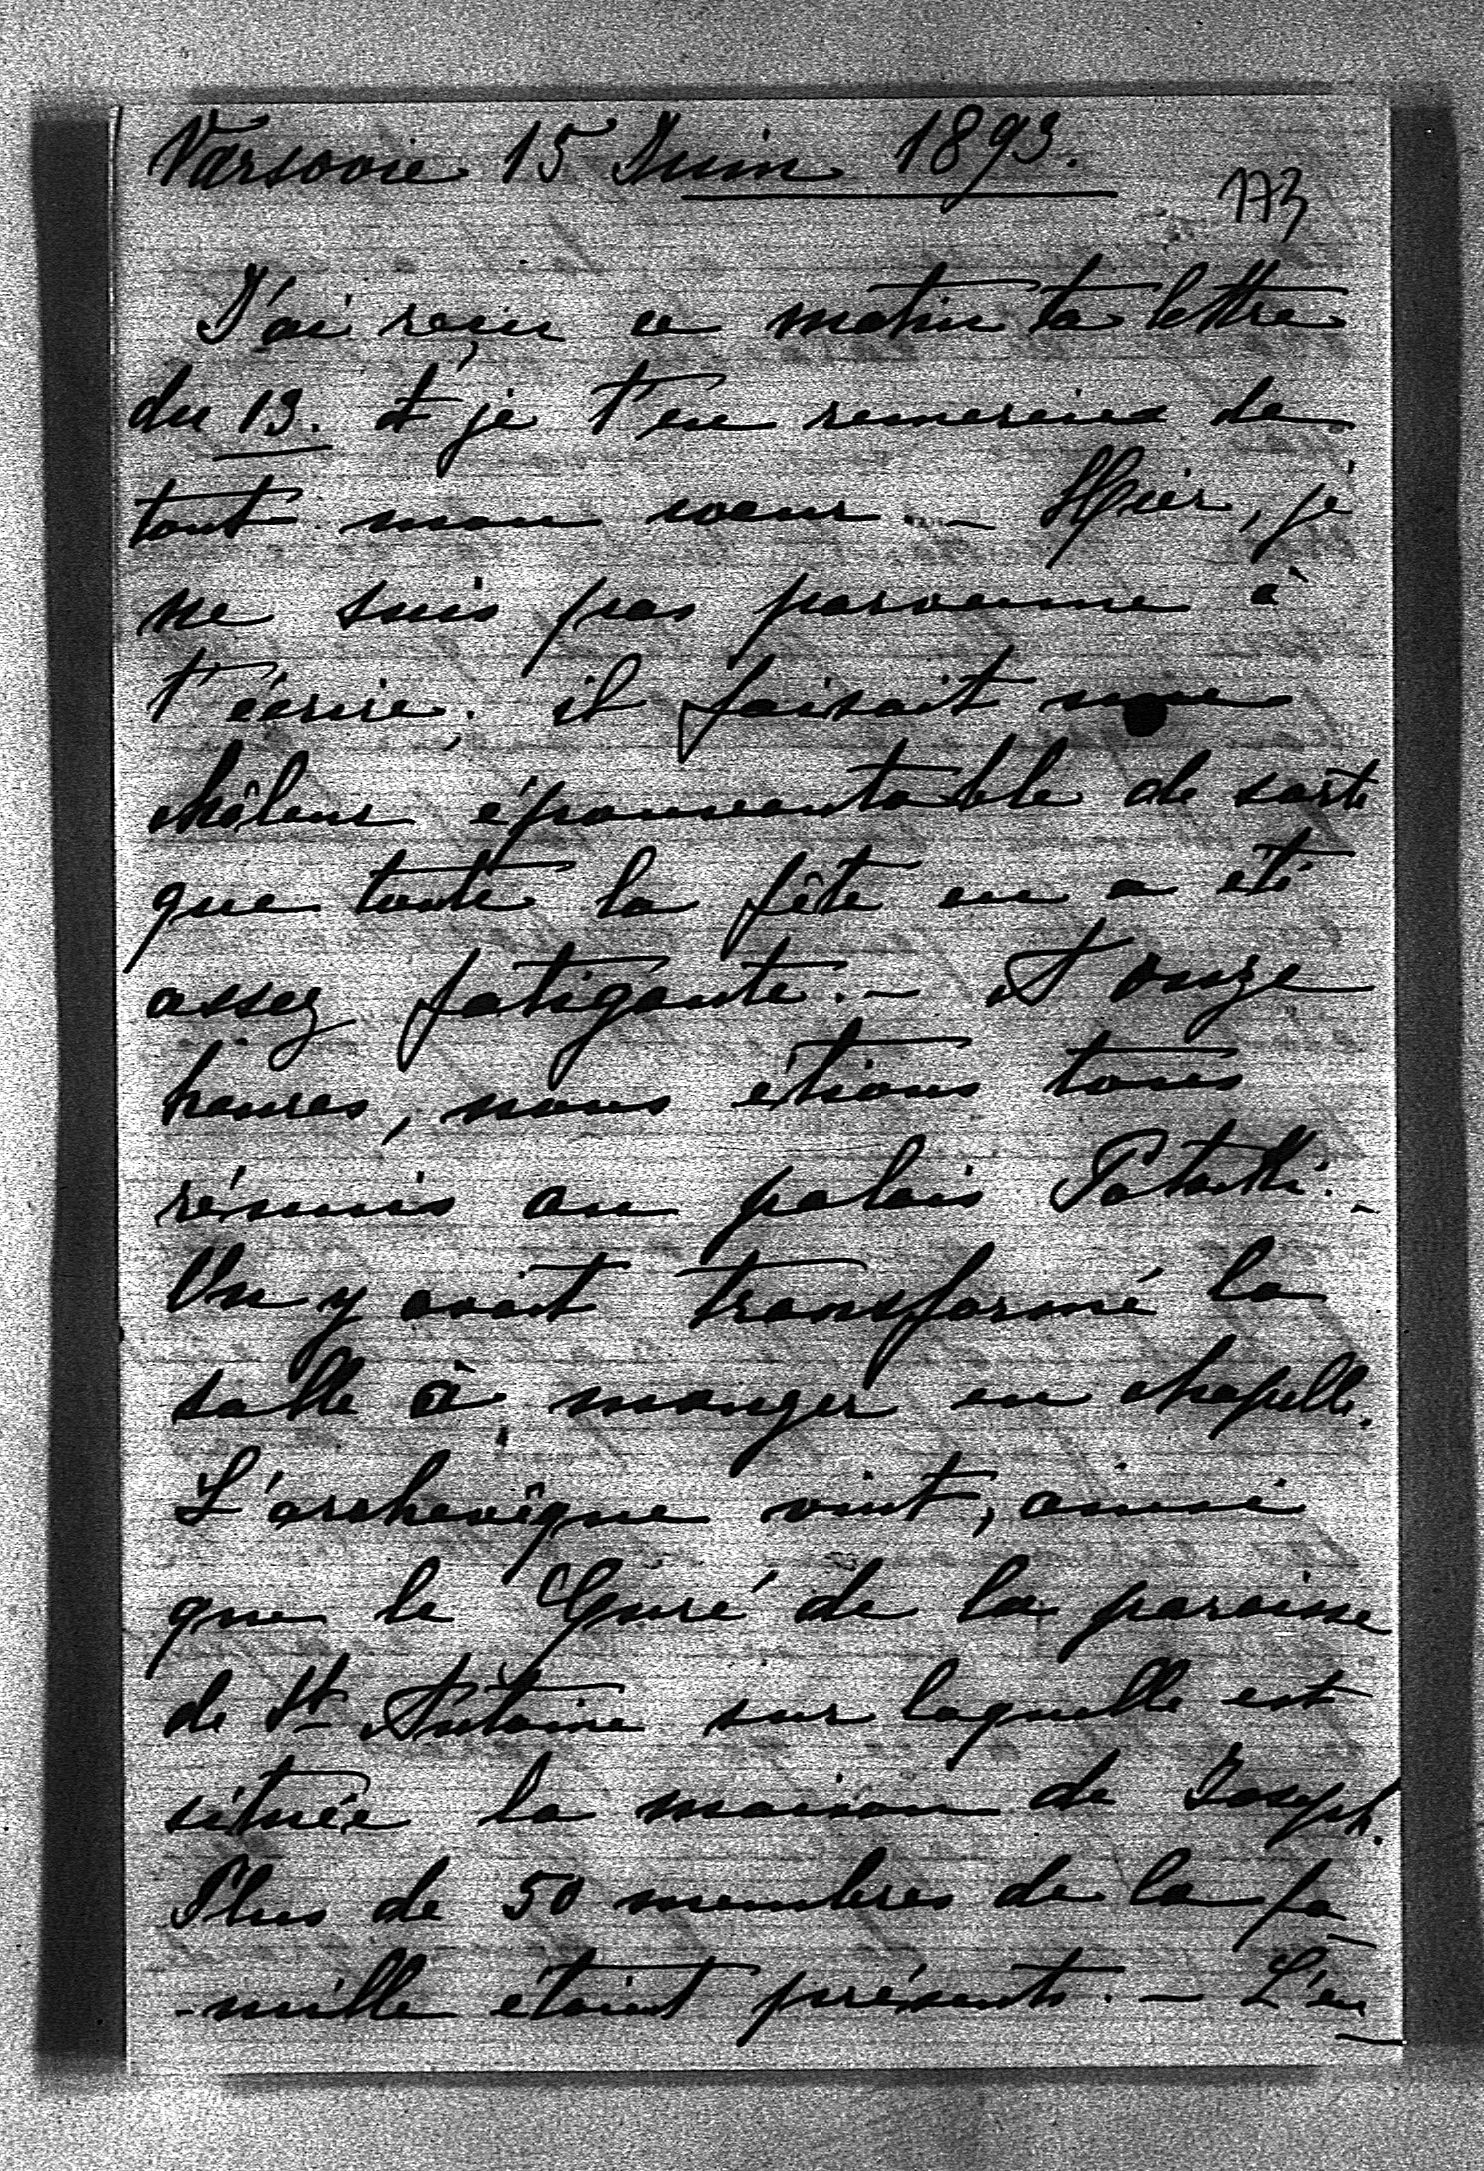 Varsovie 15 Juin 1893.
173
J'ai reçu ce matin ta lettre
du 13. et je t'en remercie de
tout mon coeur. – Hier, je
ne suis pas parvenue à
t'écrire. il faisait une
châleur épouvantable de sorte
que toute la fête en a été
assez fatigante. – A onze
heures, nous étions tous
réunis au palais Potocki. –
On y avait transformé la
salle à manger en chapelle.
L'archevêque vint, ainsi
que le Curé de la paroisse
de St Antoine sur laquelle est
située la maison de Joseph.
Plus de 50 membres de la fa-
-mille étaient présents. – L'en-